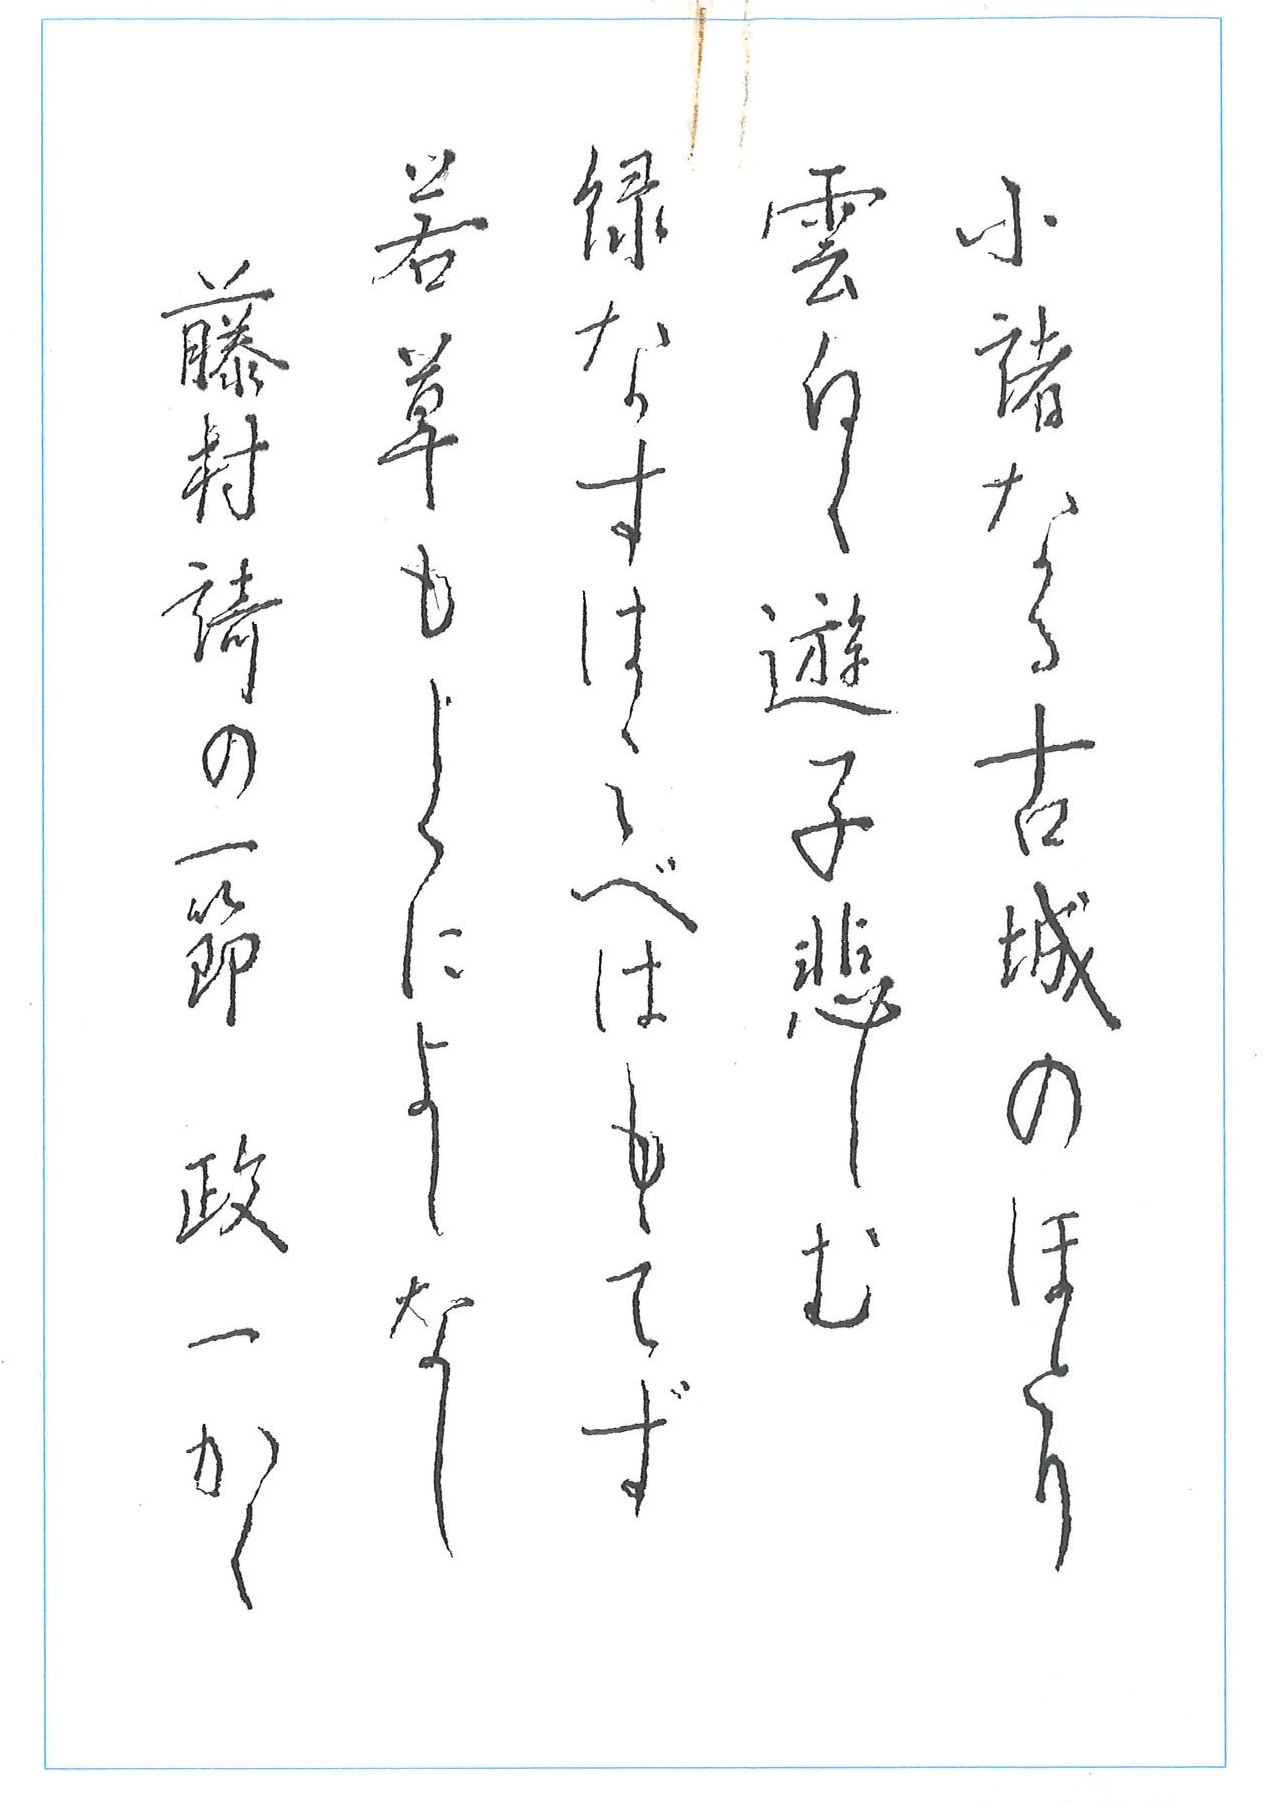 小諸なる古城のほとり
雲白く遊子悲しむ
緑なすはこべはもえず
若草もしくによしなし
藤村詩の一節　政一かく